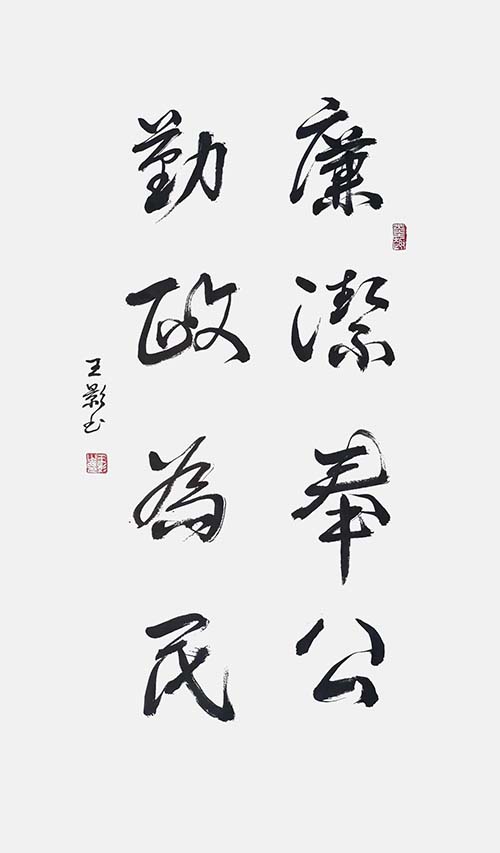 廉潔奉公
勤政為民
王影书